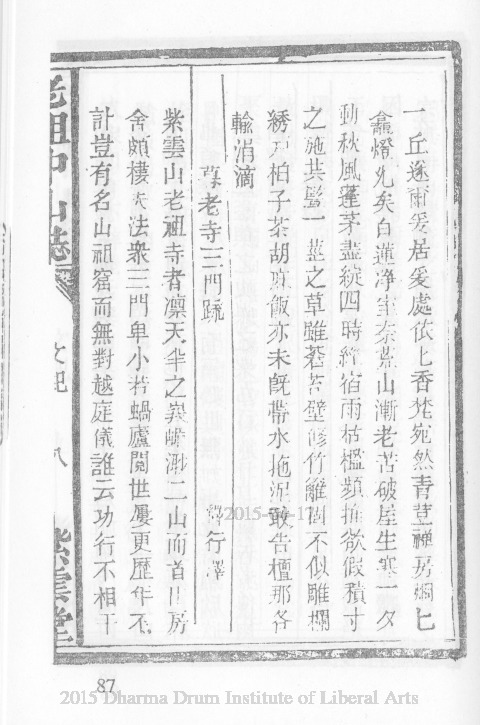 一丘遂爾爰居爰處依上香梵宛然青荳禪房綱七
龕燈先矣白蓮淨室奈紫山漸老苦破屋生寒一夕
動秋風蓬茅盡綻四時經宿雨枯櫺頻摧欲假積寸
之施共鬘一莖之草雖蒼苔壁修竹籬園不似雕欄
綉戶柏子茶胡麻飯亦未旣帶水拖泥敢告檀那各
輸涓滴
募老寺三門疏
行澤
紫雲山老祖寺者凜天半之巍巘瀰二山而首出房
舍頗棲大法衆三門卑小若蝸廬閱世屢更歷年不
計豈有名山祖窟而無對越庭儀誰云功行不相干
老祖中山誌
文記
八
紫雲堂
87
2015 Dharma Drum Institute of Liberal Arts